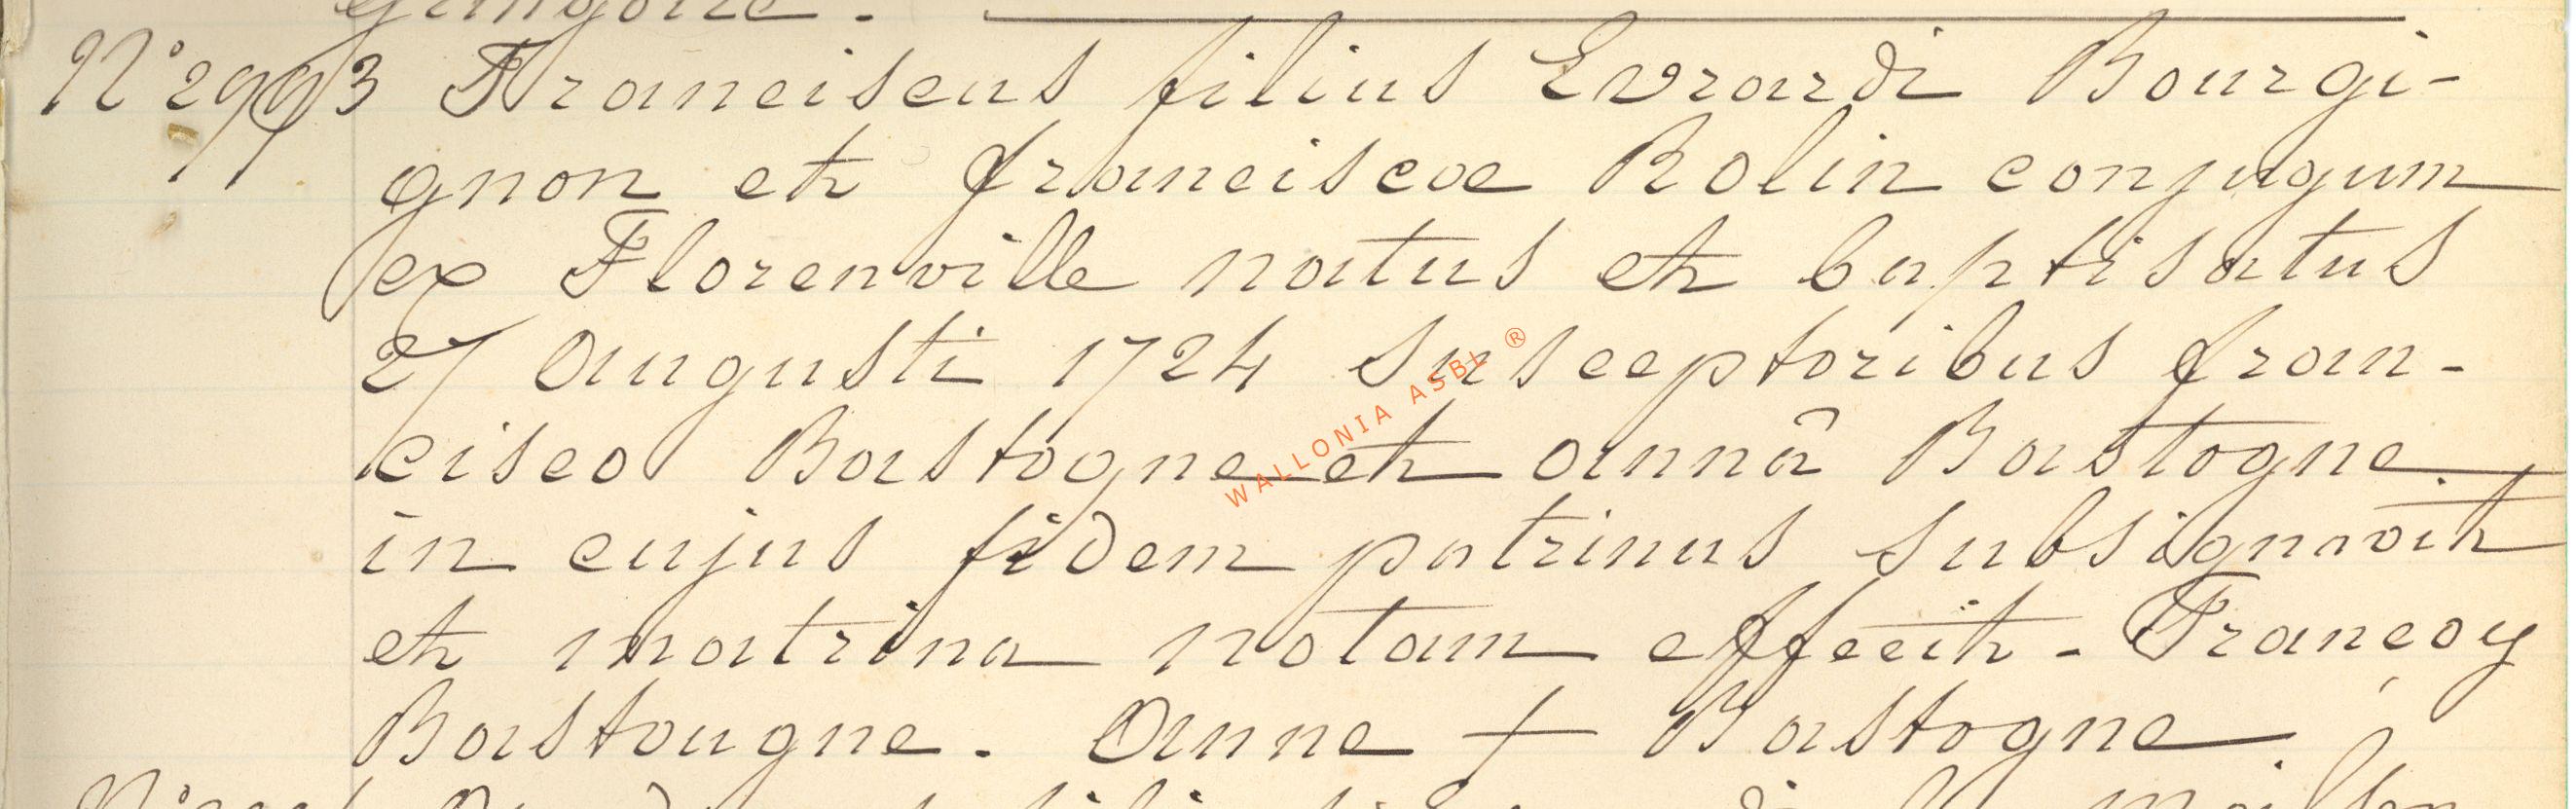 N° 2993 Franciscus filius Evrardi Bourgi-
gnon et franciscæ Rolin conjugum
ex Florenville natus et baptisatus
27 Augusti 1724 Susceptoribus fran-
cisco Bastogne et annâ Bastogne.
WALLONIA ASBL ®
in cujus fidem patrinus subsignavit
et matrina notam effecit - Françoy
Bastougne. Anne + Bastogne.